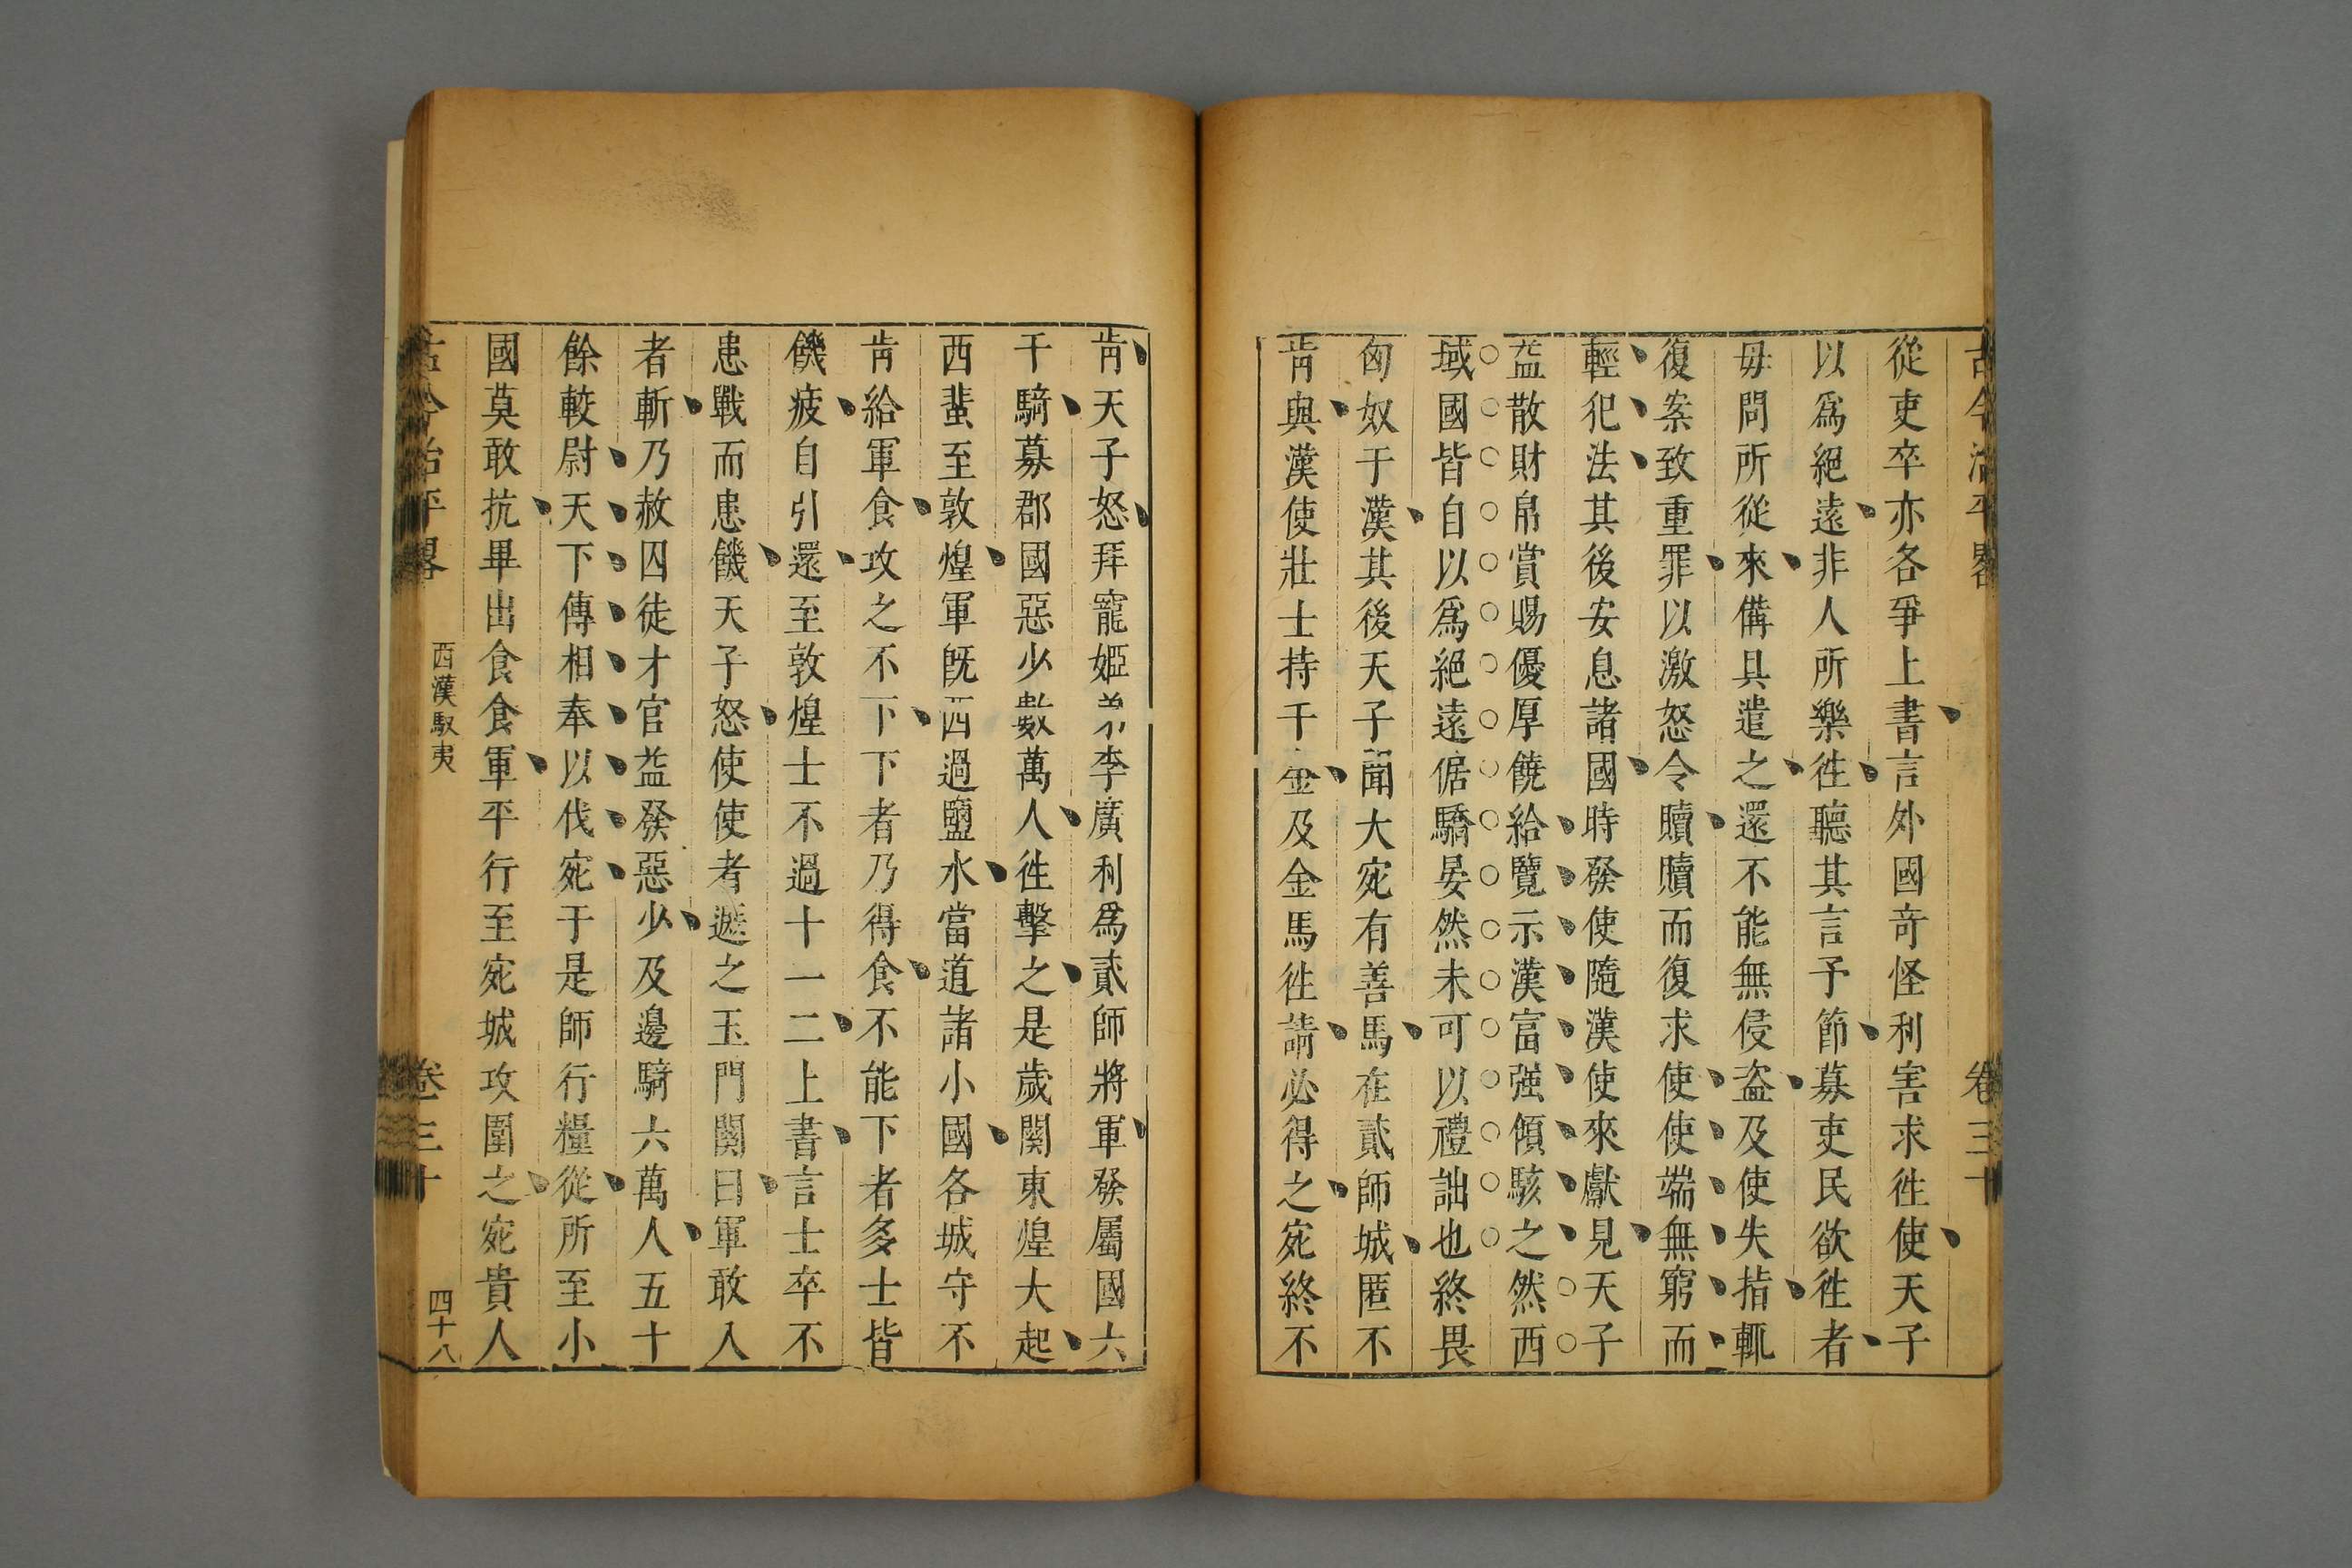 古今治平畧 卷三十
從吏卒亦各爭上書言外國奇怪利害求徃使天子
以爲絕遠非人所樂徃聽其言予節募吏民欲徃者
毋問所從來備具遣之還不能無侵盗及使失指輒
復案致重罪以激怒令贖贖而復求使使端無窮而
輕犯法其後安息諸國時發使隨漢使來獻見天子
益散財帛賞賜優厚饒給覽示漢富强傾駭之然西
域國皆自以爲絕遠倨驕晏然未可以禮詘也終畏
匈奴于漢其後天子聞大宛有善馬在貳師城匿不
肯與漢使壯士持千金及金馬徃請必得之宛終不
肯天子怒拜寵姬弟李廣利爲貳師將軍發屬國六
千騎募郡國惡少數萬人徃擊之是歲關東煌大起
西蜚至敦煌軍旣西過鹽水當道諸小國各城守不
肯給軍食攻之不下下者乃得食不能下者多士皆
饑疲自引還至敦煌士不過十一二上書言士卒不
患戰而患饑天子怒使使者遮之玉門關曰軍敢入
者斬乃赦囚徒才官益發惡少及邊騎六萬人五十
餘較尉天下傳相奉以伐宛于是師行糧從所至小
國莫敢抗畢出食食軍平行至宛城攻圍之宛貴人
古今治平畧 西漢馭夷 卷三十 四十八